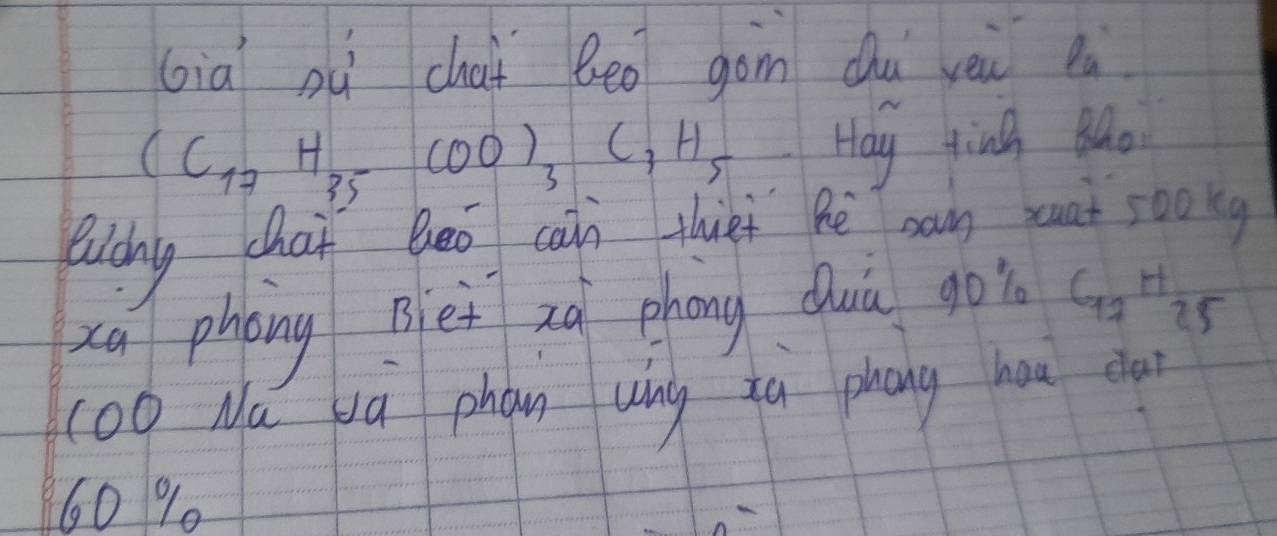 Giả sử chất béo gồm chủ yếu là
(C17 H35 COO)3 C3H5. Hãy tính khối
lượng chất béo cần thiết kế sản xuất 500 kg
xà phòng Biết xà phòng chứa 90% C17 H35
COO Na và phản ứng xà phòng hoá đạt
60%